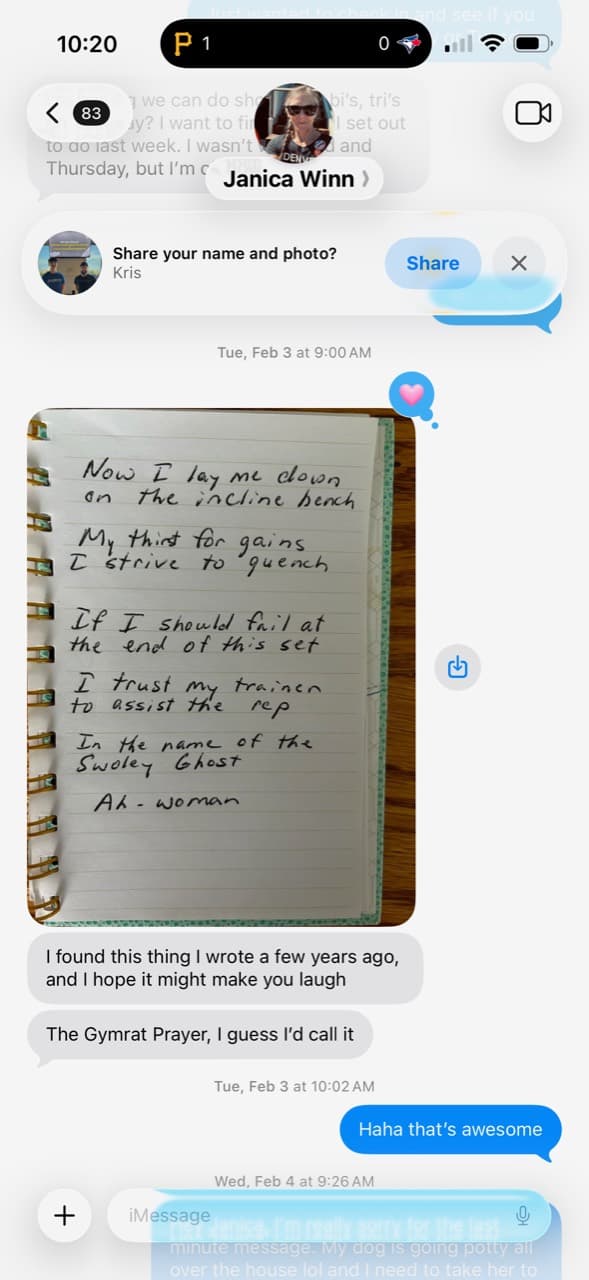 Just wanted to check in and see if you
10:20 P 1 0
we can do bi's, tri's
83
I want to set out
to do last week. I wasn't and
Thursday, but I'm
DENV
Janica Winn
Share your name and photo?
Kris
Share
Tue, Feb 3 at 9:00 AM
Now I lay me down
on the incline bench
My thirst for gains
I strive to quench
If I should fail at
the end of this set
I trust my trainer
to assist the rep
In the name of the
Swoley Ghost
Ah - woman
I found this thing I wrote a few years ago,
and I hope it might make you laugh
The Gymrat Prayer, I guess I'd call it
Tue, Feb 3 at 10:02 AM
Haha that's awesome
Wed, Feb 4 at 9:26 AM
iMessage
I'm really sorry for the last
minute message. My dog is going potty all
over the house lol and I need to take her to